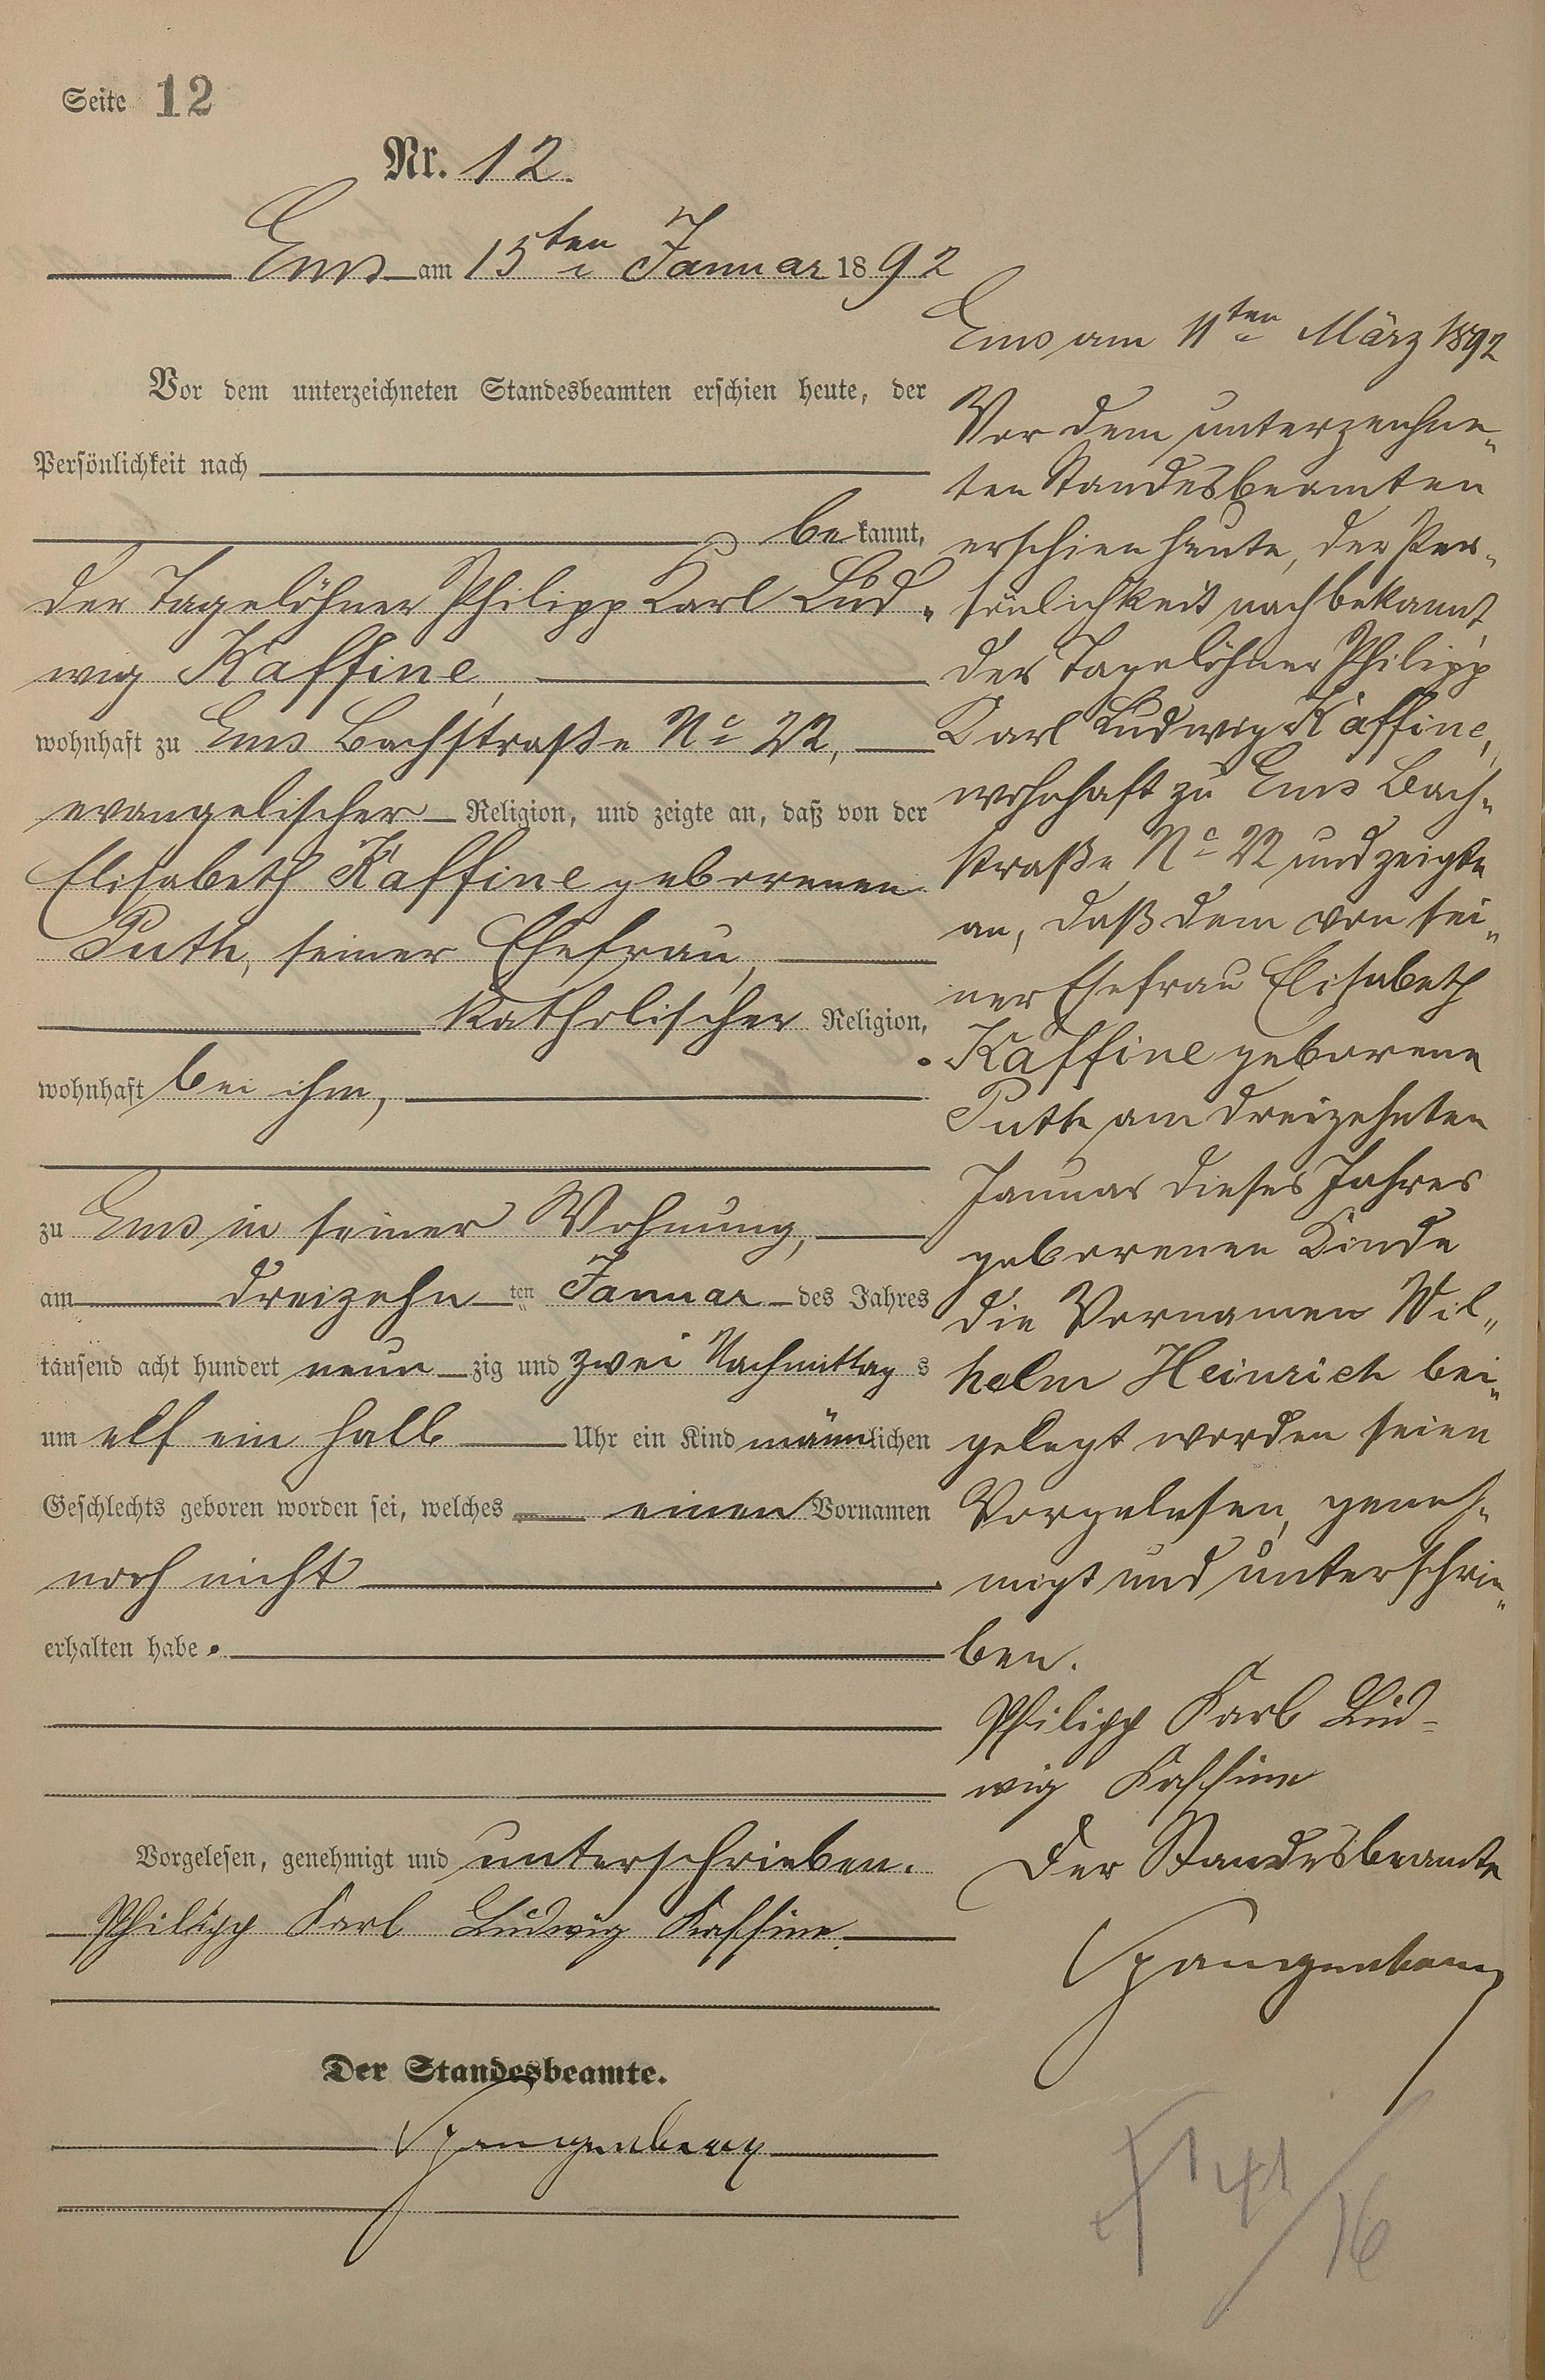 Seite 12
Nr. 12.
Ems am 15ten Januar 1892
Vor dem unterzeichneten Standesbeamten erschien heute, der
Persönlichkeit nach
bekannt,
der Tagelöhner Philipp Karl Lud„
wig Kaffine,
wohnhaft zu Ems Bachstraße No 22,
evangelischer Religion, und zeigte an, daß von der
Elisabeth Kaffine geborenen
Puth, seiner Ehefrau,
katholischer Religion,
wohnhaft bei ihm,
zu Ems in seiner Wohnung,
am dreizehn ten Januar des Jahres
tausend acht hundert neunzig und zwei Nachmittags
um elf ein halb Uhr ein Kind männlichen
Geschlechts geboren worden sei, welches einen Vornamen
noch nicht
erhalten habe.
Vorgelesen, genehmigt und unterschrieben.
Philipp Karl Ludwig Kaffine.
Der Standesbeamte.
Spangenberg
Ems am 11ten März 1892
Vor dem unterzeichne„
ten Standesbeamten
erschien heute, der Per„
sönlichkeit nach bekannt,
der Tagelöhner Philipp
Karl Ludwig Kaffine,
wohnhaft zu Ems Bach„
straße No 22 und zeigte
an, daß dem von sei„
ner Ehefrau Elisabeth
Kaffine geborene
Puth am dreizehnten
Januar dieses Jahres
geborenen Kinde
die Vornamen Wil„
helm Heinrich bei„
gelegt worden seien
Vorgelesen, geneh„
migt und unterschrie„
ben.
Philipp Karl Lud-
wig Kaffine
Der Standesbeamte
Spangenberg